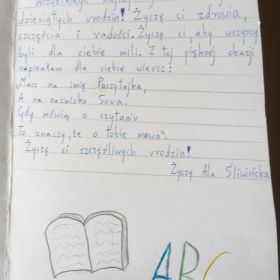 wszystkiego najlep
dziesiątych urodzin! Życzę ci zdrowia,
szczęścia i radości. Życzę ci, aby wszyscy
byli dla ciebie mili. Z tej pięknej okazji
napisałam dla ciebie wiersz:
„Masz na imię Poczytajka,
A na nazwisko Sowa.
Gdy mówią o czytaniu
To znaczy, że o tobie mowa”.
Życzę ci szczęśliwych urodzin!
Życzy Ala Śliwińska
ABC